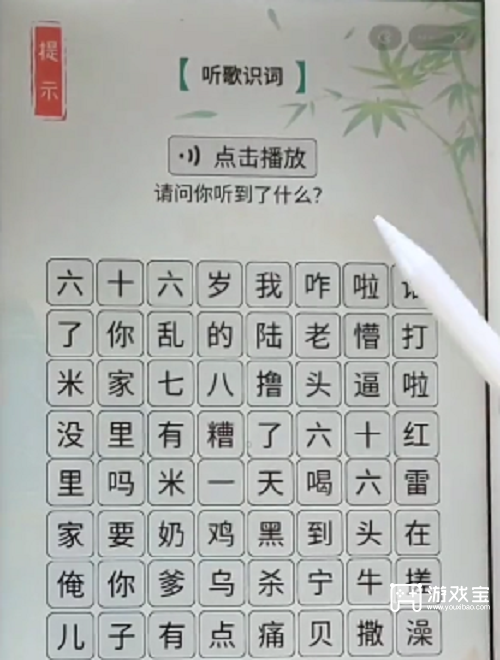 提示
【听歌识词】
点击播放
请问你听到了什么?
六十六岁我咋啦
了你乱的陆老懵打
米家七八撸头逼啦
没里有糟了六十红
里吗米一天喝六雷
家要奶鸡黑到头在
俺你爹乌杀宁牛搓
儿子有点痛贝撒澡
游戏宝
www.youxibao.com